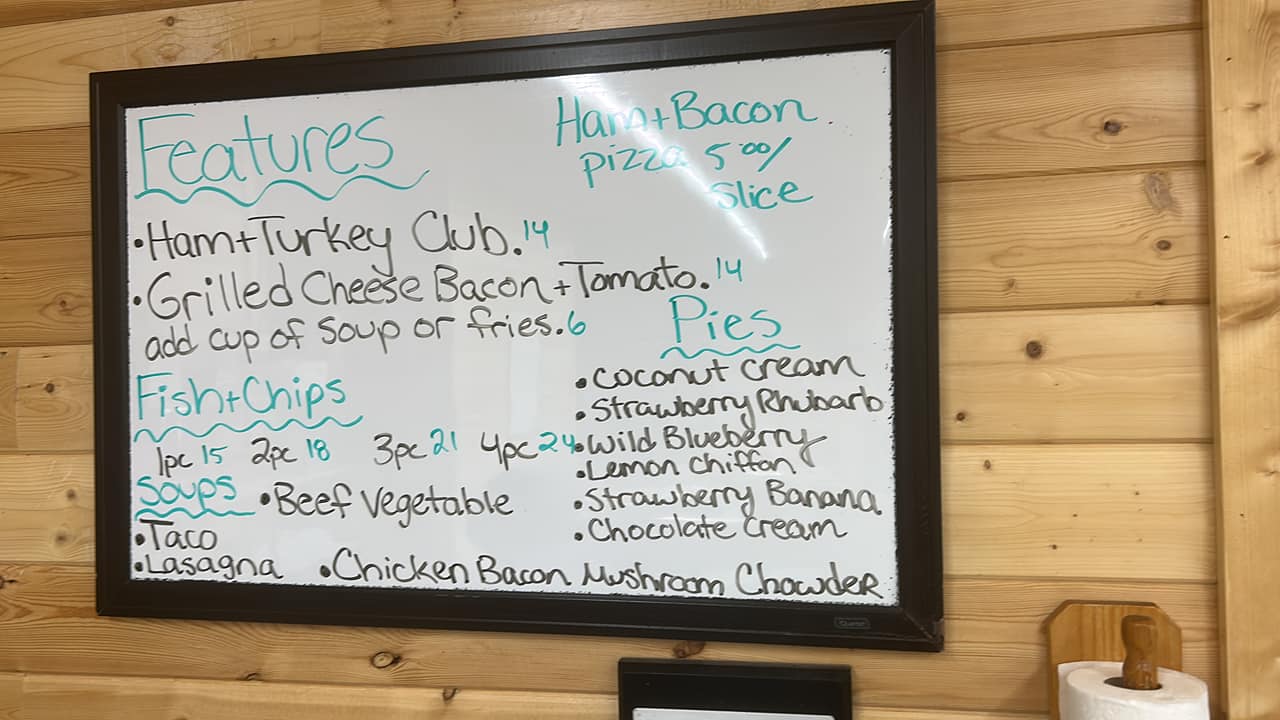 Features
Ham+Bacon
pizza 5 00/
Slice
•Ham+Turkey Club. 14
•Grilled Cheese Bacon+Tomato. 14
add cup of soup or fries. 6
Fish+Chips
1pc 15 2pc 18 3pc 21 4pc 24
Soups •Beef Vegetable
•Taco
•Lasagna •Chicken Bacon Mushroom Chowder
Pies
•Coconut Cream
•Strawberry Rhubarb
•Wild Blueberry
•Lemon Chiffon
•Strawberry Banana
•Chocolate Cream
Quartet